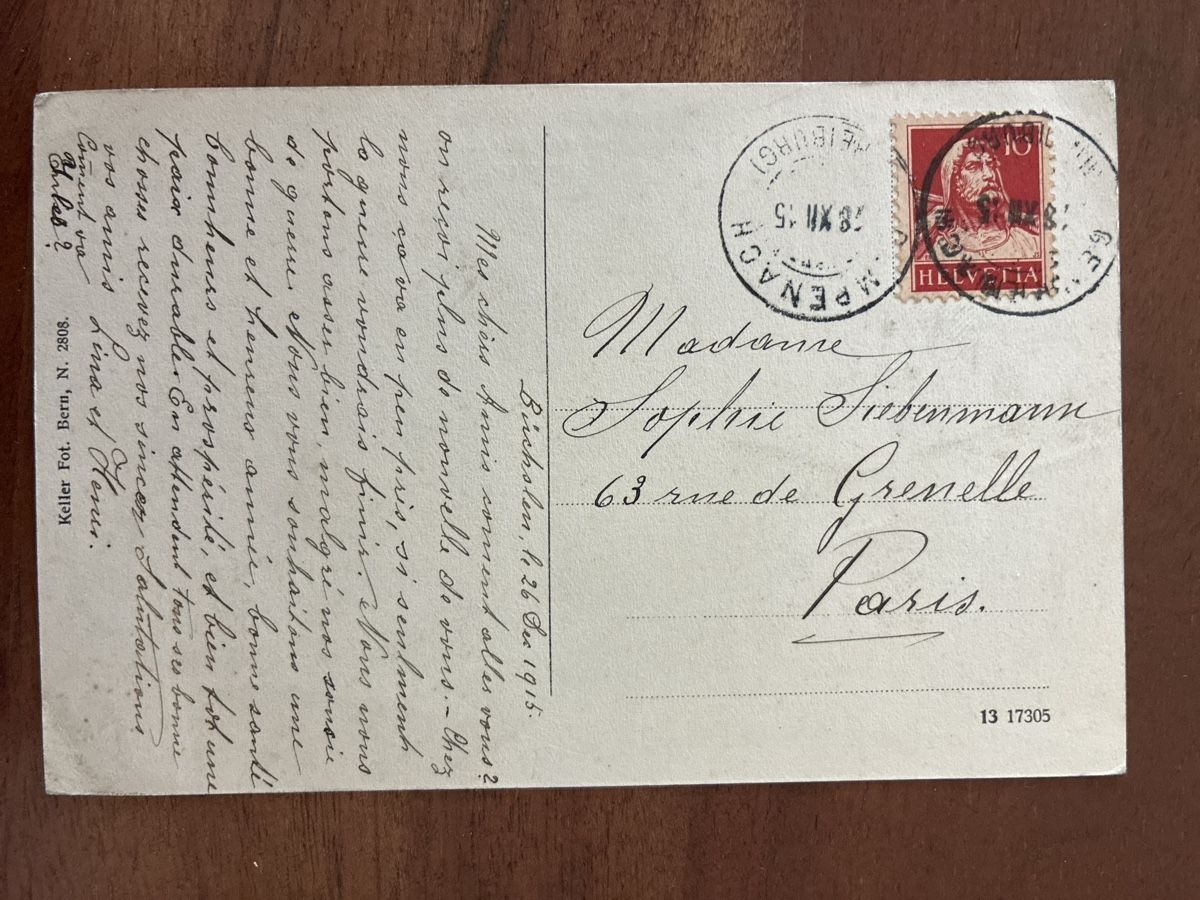 Büchslen, le 26 Dec 1915.
Mes chèrs Amis coment alles vous?
on reçoi plus de nouvelle de vous. - Chez
nous ca va en peu près, si seulment
la guerre voudrais finir. Nous nous
portons asser bien, malgré nos soucie
de guerre. Nous vous souhaitons une
bonne et heureus année, bonne santé
bonnheurs et prospérité, et bien tot une
paix durable. En attendent tous ses bonne
choses recevez nos sincer Salutations
vos amis Lina et Henri.
Coment va
Keller Fot. Bern, N. 2808.
10
HELVETIA
MPENACH
(FREIBURG)
28 XII 15
28 XII 15
Madame
Sophie Siebenmann
63 rue de Grenelle
Paris.
13 17305